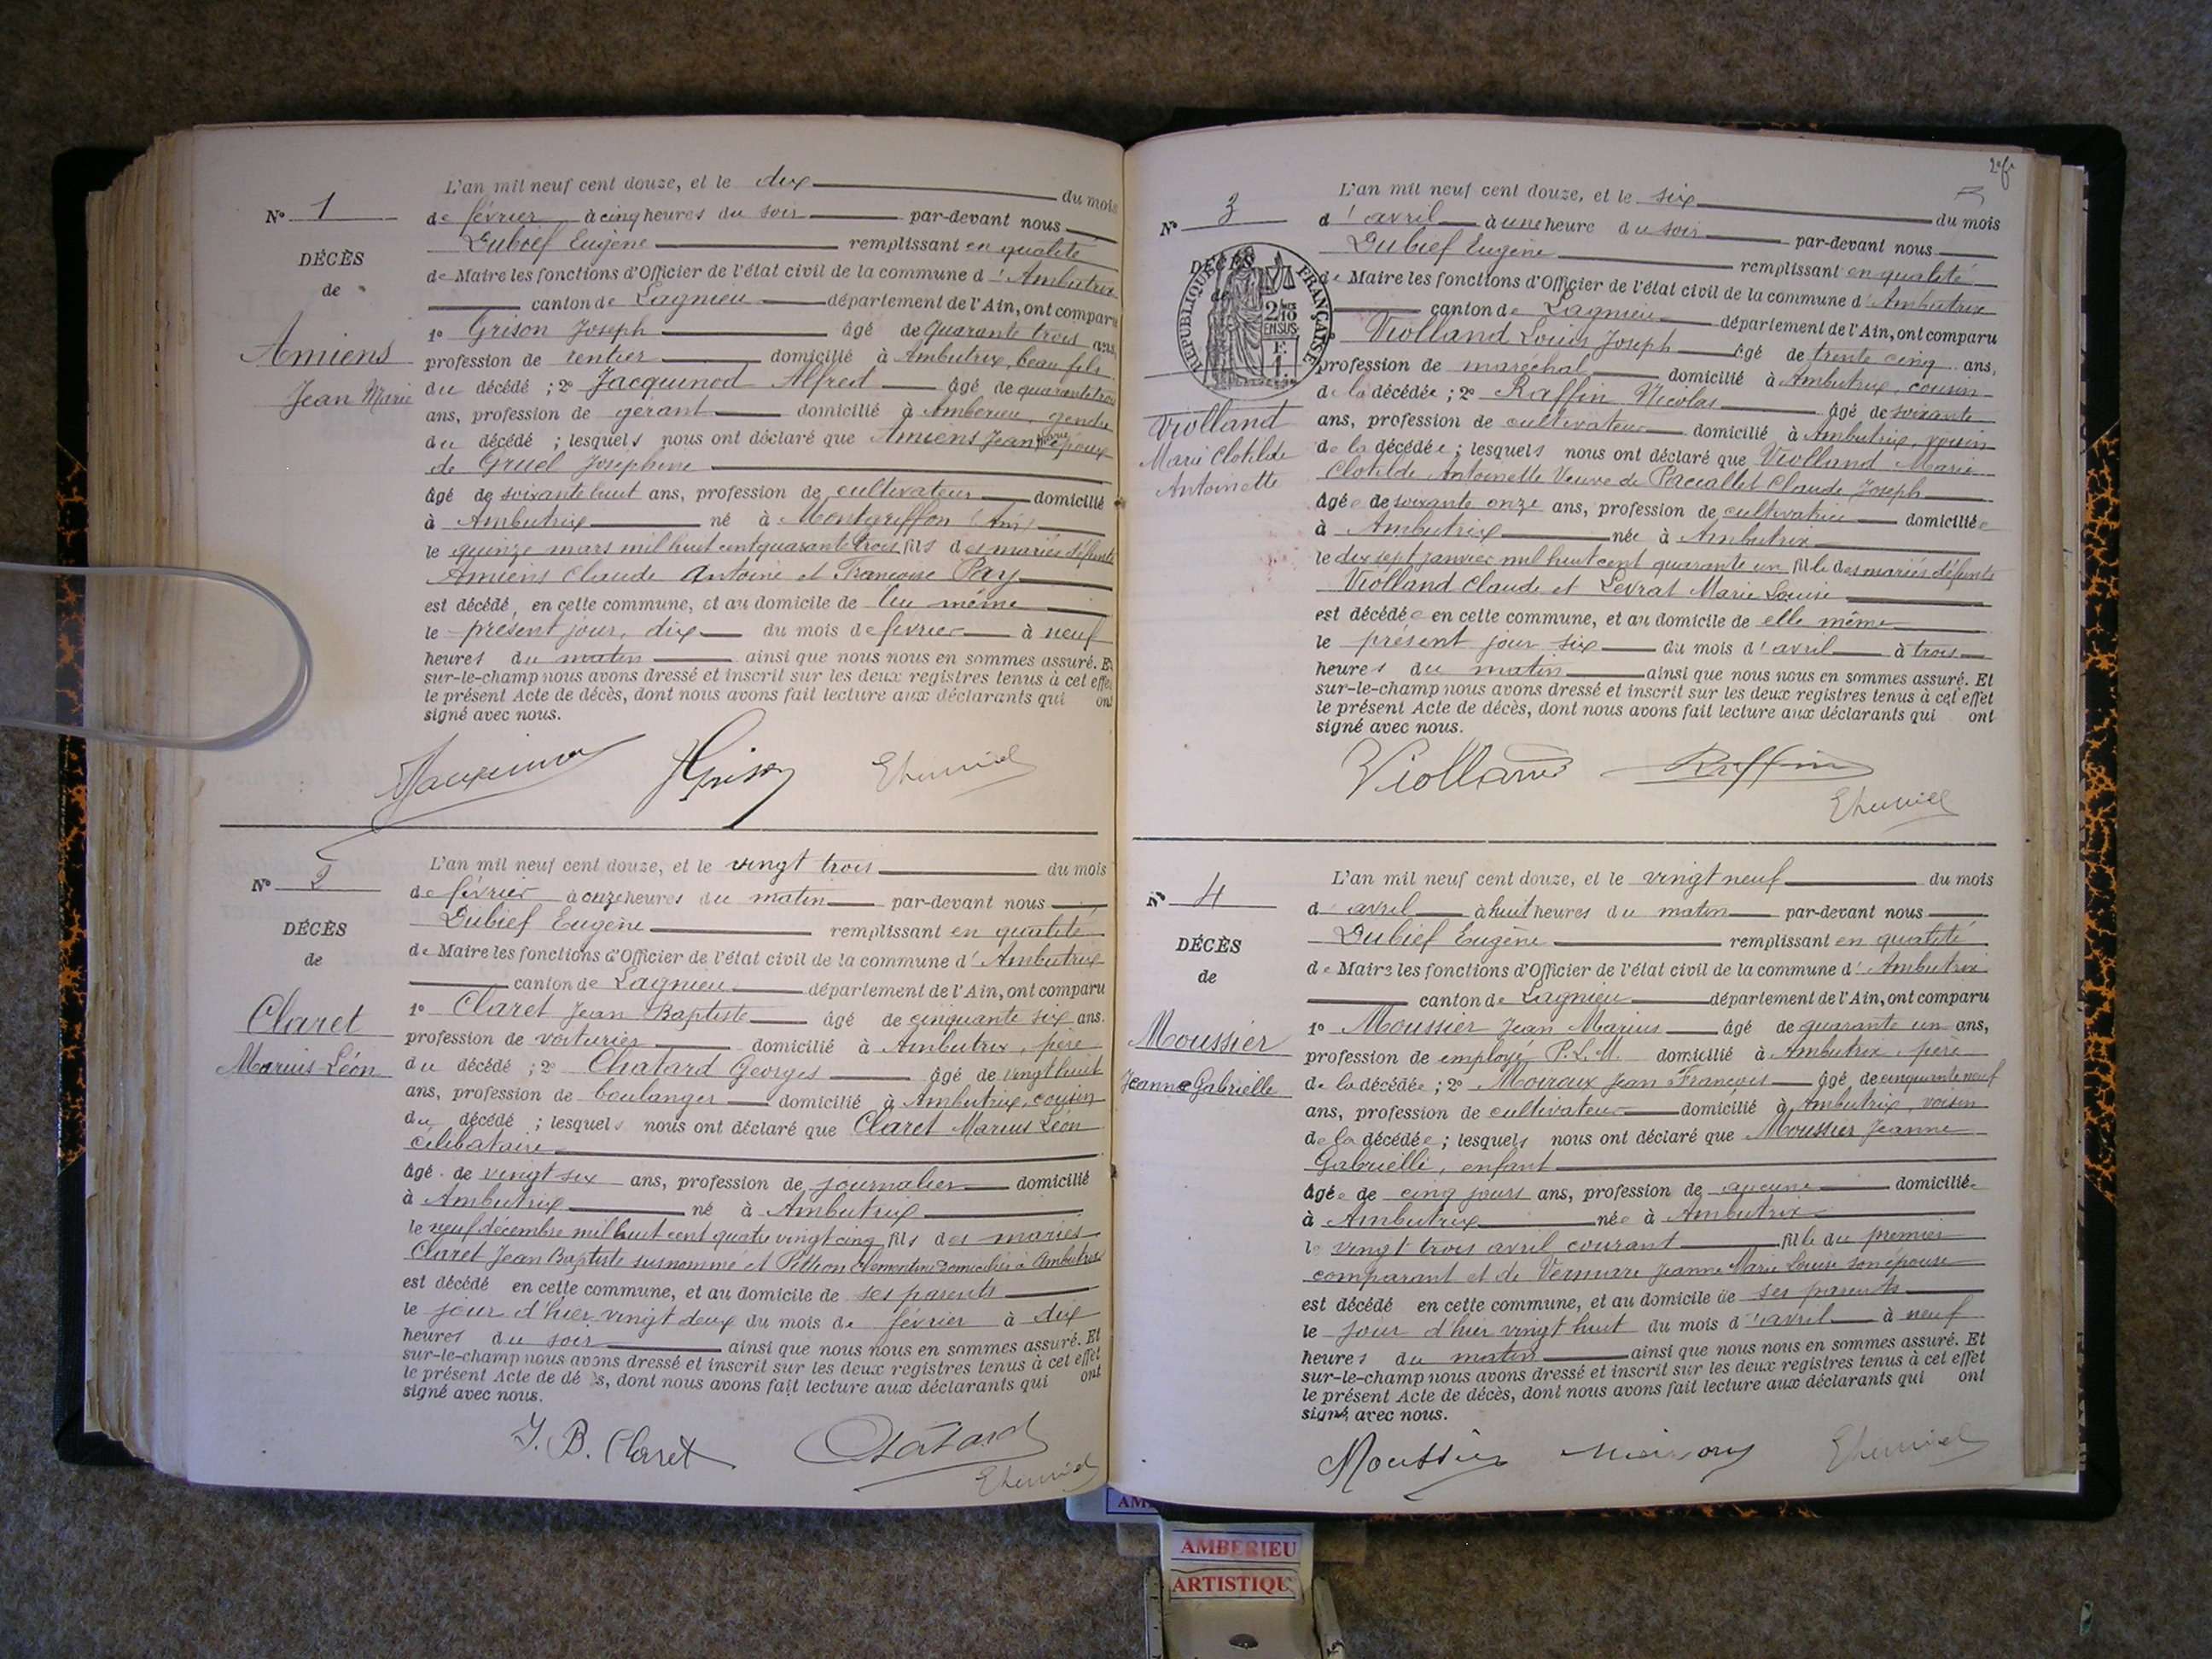 L'an mil neuf cent douze, et le dix du mois
N° 1
de février à cinq heures du soir par-devant nous
Dubief Eugène remplissant en qualité
DÉCÈS
de
de Maire les fonctions d'Officier de l'état civil de la commune d'Ambutrix
canton de Lagnieu département de l'Ain, ont comparu
1° Grison Joseph âgé de quarante trois ans,
Amiens
Jean Marie
profession de rentier domicilié à Ambutrix, beau fils
du décédé ; 2° Jacquinod Alfred âgé de quarante trois
ans, profession de gérant domicilié à Ambérieu, gendre
du décédé ; lesquels nous ont déclaré que Amiens Jean Marie époux
de Gruel Josephine
âgé de soixante huit ans, profession de cultivateur domicilié
à Ambutrix né à Montgriffon (Ain)
le quinze mars mil huit cent quarante trois, fils des mariés défunts
Amiens Claude Antoine et Françoise Pay
est décédé, en cette commune, et au domicile de lui même
le présent jour, dix du mois de février à neuf
heures du matin ainsi que nous nous en sommes assuré. Et
sur-le-champ nous avons dressé et inscrit sur les deux registres tenus à cet effet
le présent Acte de décès, dont nous avons fait lecture aux déclarants qui ont
signé avec nous.
L'an mil neuf cent douze, et le vingt trois du mois
N° 2
de février à onze heures du matin par-devant nous
Dubief Eugène remplissant en qualité
DÉCÈS
de
de Maire les fonctions d'Officier de l'état civil de la commune d'Ambutrix
canton de Lagnieu département de l'Ain, ont comparu
Claret
Marius Léon
1° Claret Jean Baptiste âgé de cinquante six ans.
profession de voiturier domicilié à Ambutrix, père
du décédé ; 2° Chatard Georges âgé de vingt huit
ans, profession de boulanger domicilié à Ambutrix, cousin
du décédé ; lesquels nous ont déclaré que Claret Marius Léon
célibataire
âgé de vingt six ans, profession de journalier domicilié
à Ambutrix né à Ambutrix
le neuf décembre mil huit cent quatre vingt cinq fils des mariés
Claret Jean Baptiste susnommé et Clementine domiciliés à Ambutrix
est décédé en cette commune, et au domicile de ses parents
le jour d'hier vingt deux du mois de février à dix
heures du soir ainsi que nous nous en sommes assuré. Et
sur-le-champ nous avons dressé et inscrit sur les deux registres tenus à cet effet
le présent Acte de dé s, dont nous avons fait lecture aux déclarants qui ont
signé avec nous.
J. B. Claret Chatard
2e f.
3
L'an mil neuf cent douze, et le six du mois
N° 3
d'avril à une heure du soir par-devant nous
Dubief Eugène remplissant en qualité
DÉCÈS
de
RÉPUBLIQUE FRANÇAISE
2/10 EN SUS
de Maire les fonctions d'Officier de l'état civil de la commune d'Ambutrix
canton de Lagnieu département de l'Ain, ont comparu
Violland Louis Joseph âgé de trente cinq ans,
profession de maréchal domicilié à Ambutrix, cousin
Violland
Marie Clotilde
Antoinette
de la décédée ; 2° Raffin Nicolas âgé de soixante
ans, profession de cultivateur domicilié à Ambutrix, voisin
de la décédée ; lesquels nous ont déclaré que Violland Marie
Clotilde Antoinette Veuve de Paccallet Claude Joseph
âgée de soixante onze ans, profession de cultivatrice domiciliée
à Ambutrix née à Ambutrix
le dix sept janvier mil huit cent quarante un fille des mariés défunts
Violland Claude et Levrat Marie Louise
est décédée en cette commune, et au domicile de elle même
le présent jour six du mois d'avril à trois
heures du matin ainsi que nous nous en sommes assuré. Et
sur-le-champ nous avons dressé et inscrit sur les deux registres tenus à cet effet
le présent Acte de décès, dont nous avons fait lecture aux déclarants qui ont
signé avec nous.
Violland Raffin
L'an mil neuf cent douze, et le vingt neuf du mois
N° 4
d'avril à huit heures du matin par-devant nous
Dubief Eugène remplissant en qualité
DÉCÈS
de
de Maire les fonctions d'Officier de l'état civil de la commune d'Ambutrix
canton de Lagnieu département de l'Ain, ont comparu
Moussier
Jeanne Gabrielle
1° Moussier Jean Marius âgé de quarante un ans,
profession de employé P.L.M. domicilié à Ambutrix, père
de la décédée ; 2° Moiroux Jean François âgé de cinquante neuf
ans, profession de cultivateur domicilié à Ambutrix, voisin
de la décédée ; lesquels nous ont déclaré que Moussier Jeanne
Gabrielle, enfant
âgée de cinq jours ans, profession de aucune domiciliée
à Ambutrix née à Ambutrix
le vingt trois avril courant fille du premier
comparant et de Vermare Jeanne Marie Louise son épouse
est décédé en cette commune, et au domicile de ses parents
le jour d'hier vingt huit du mois d'avril à neuf
heures du matin ainsi que nous nous en sommes assuré. Et
sur-le-champ nous avons dressé et inscrit sur les deux registres tenus à cet effet
le présent Acte de décès, dont nous avons fait lecture aux déclarants qui ont
signé avec nous.
Moussier
AMBERIEU
ARTISTIQU